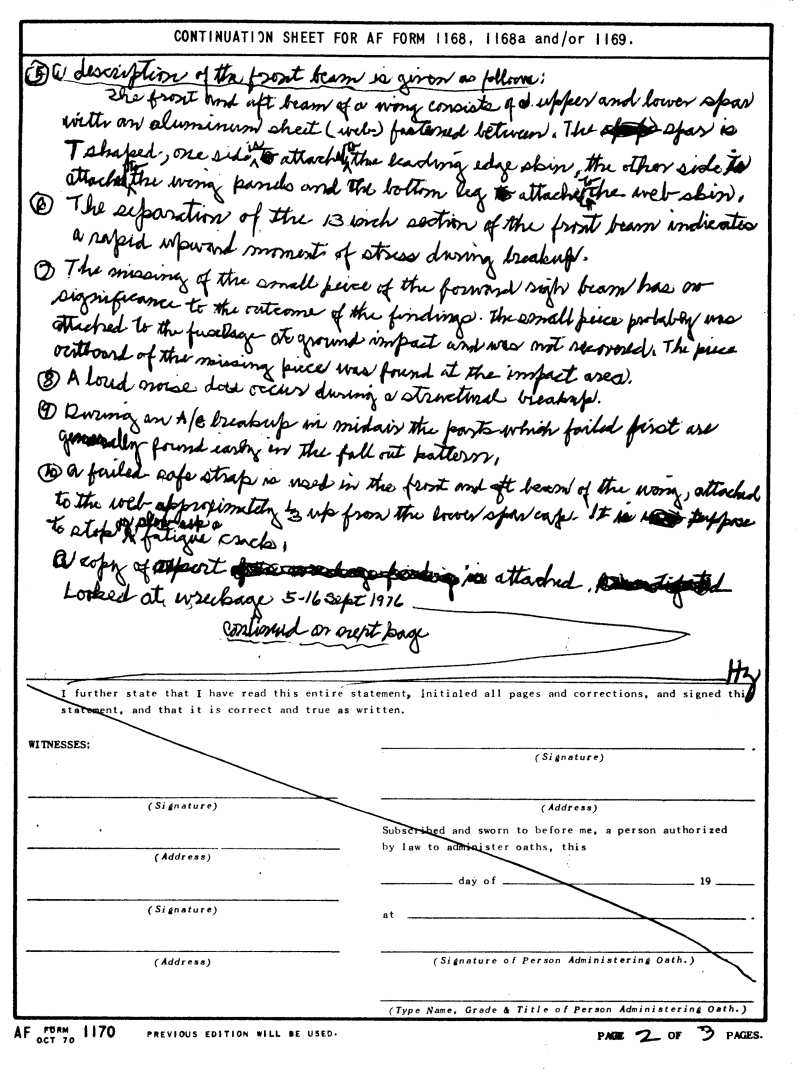 CONTINUATION SHEET FOR AF FORM 1168, 1168a and/or 1169.
⑤ A description of the front beam is given as follows:
The front and aft beam of a wing consists of upper and lower spar
with an aluminum sheet (web) fastened between. The spar is
T shaped, one side is attached to the leading edge skin, the other side is
attached to the wing panels and the bottom leg attached to the web skin.
⑥ The separation of the 13 inch section of the front beam indicates
a rapid upward moment of stress during breakup.
⑦ The missing of the small peice of the forward righ beam has no
significance to the outcome of the findings. The small peice probably was
attached to the fuselage at ground impact and was not recovered. The piece
outboard of the missing piece was found at the impact area.
⑧ A loud noise does occur during a structural breakup.
⑨ During an A/C breakup in midair the parts which failed first are
generally found early in the fall out pattern.
⑩ A failed safe strap is used in the front and aft beam of the wing, attached
to the web approximately 1/3 up from the lower spar cap. It is
to stop or slow up a fatigue crack.
A copy of report is attached.
Looked at wreckage 5-16 Sept 1976
continued on next page
Hz
I further state that I have read this entire statement, initialed all pages and corrections, and signed this
statement, and that it is correct and true as written.
WITNESSES:
(Signature)
(Signature)
(Address)
Subscribed and sworn to before me, a person authorized
by law to administer oaths, this
(Address)
day of 19
(Signature)
at
(Address)
(Signature of Person Administering Oath.)
(Type Name, Grade & Title of Person Administering Oath.)
AF FORM OCT 70 1170 PREVIOUS EDITION WILL BE USED. PAGE 2 OF 3 PAGES.